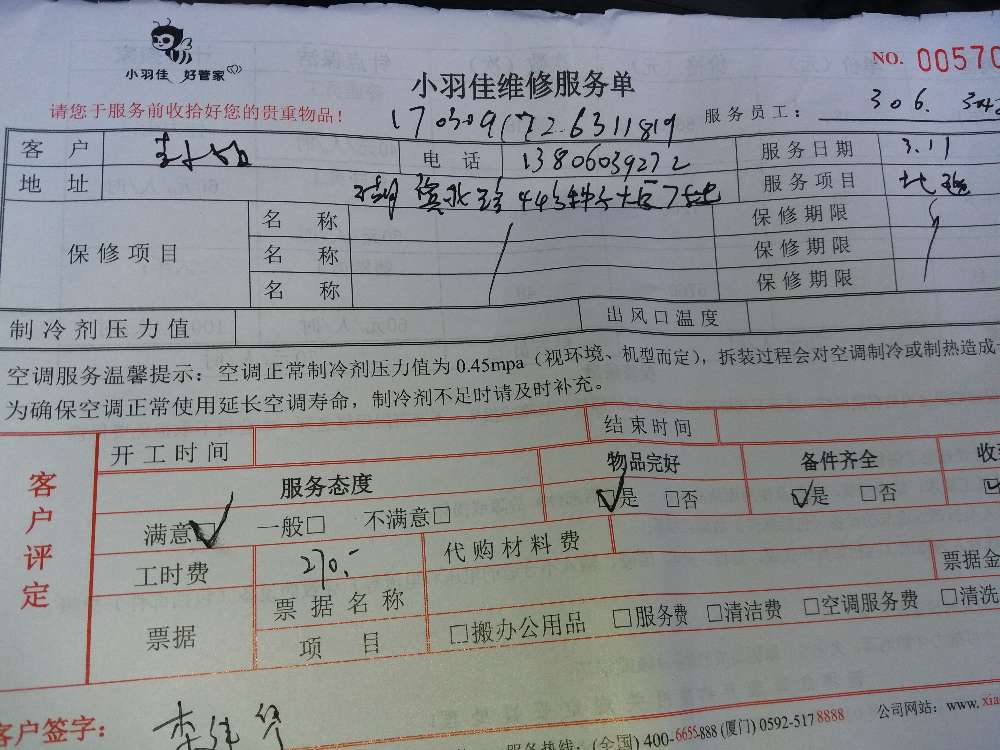 小羽佳 好管家
NO. 00570
小羽佳维修服务单
请您于服务前收拾好您的贵重物品!
服务员工: 306.
客户 电话 13806039272 服务日期 3.11
地址 服务项目
保修项目 名称 保修期限
名称 保修期限
名称 保修期限
制冷剂压力值 出风口温度
空调服务温馨提示:空调正常制冷剂压力值为0.45mpa(视环境、机型而定),拆装过程会对空调制冷或制热造成
为确保空调正常使用延长空调寿命,制冷剂不足时请及时补充。
客户评定
开工时间 结束时间
服务态度 物品完好 备件齐全
满意☑ 一般□ 不满意□ ☑是 □否 ☑是 □否
工时费 270. 代购材料费
票据 票据名称 票据金
项目 □搬办公用品 □服务费 □清洁费 □空调服务费 □清洗
客户签字:
服务热线:(全国) 400-6655-888 (厦门) 0592-5178888 公司网站:www.xia